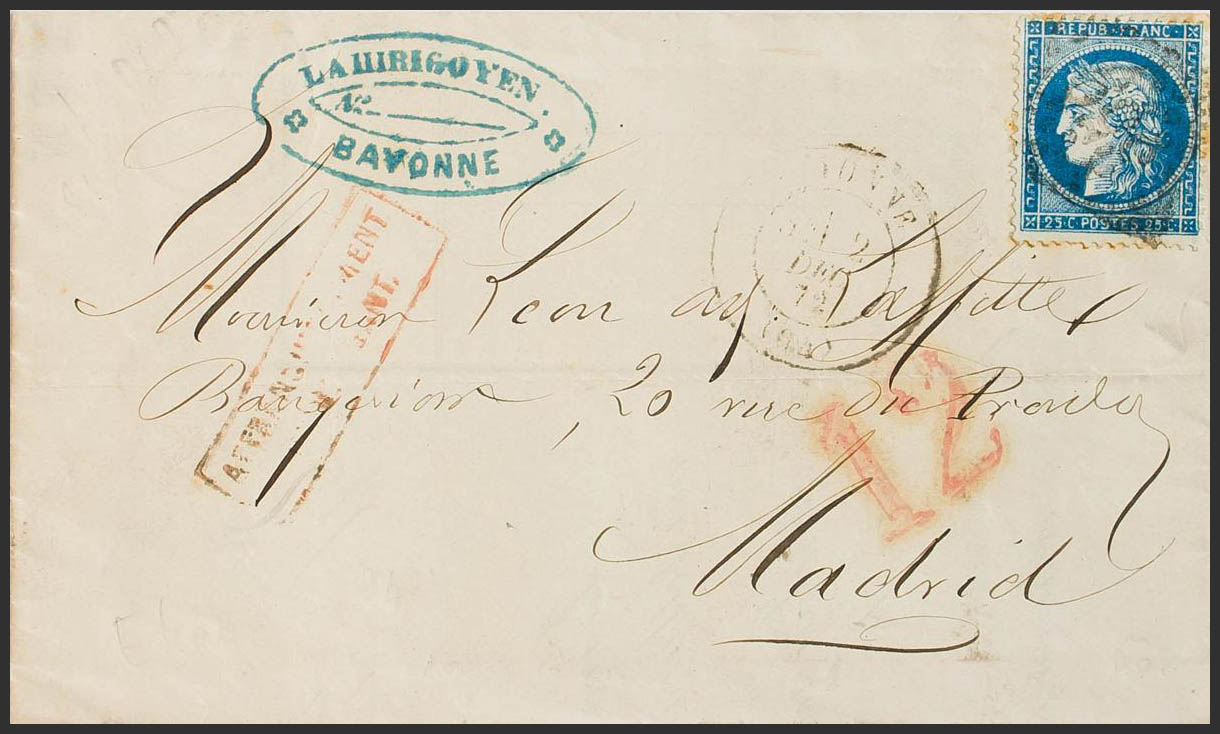 LAHIRIGOYEN.
No
BAYONNE
REPUB FRANC
25 C POSTES 25 C
YONNE
9
DEC
AFFRANCHISSEMENT
Monsieur Léon ad Laffitte
Banquier, 20 rue du Prado
12
Madrid